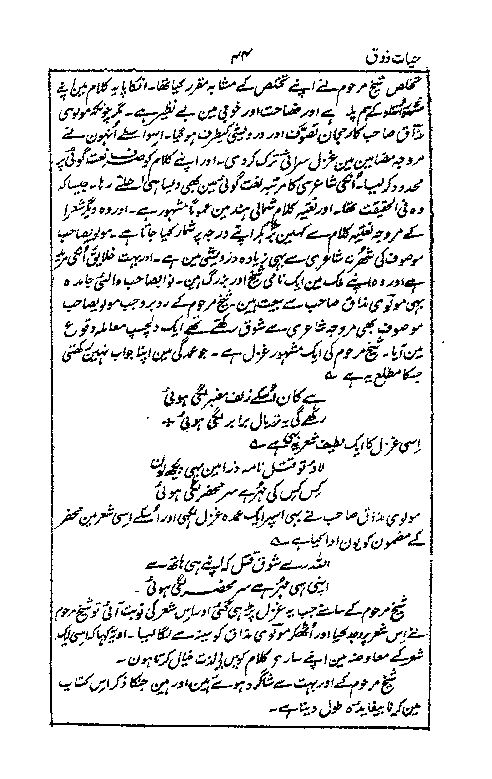 حیات ذوق
۴۴
تخلص شیخ مرحوم نے اپنے تخلص کے مشابہ مقرر کیا تھا۔ انکا پایہ کلام مین اپنے
کے ہم پلہ ہے اور فصاحت اور خوبی مین بے نظیر ہے۔ مگر چونکہ مولوی
مذاق صاحب کا رجحان تصوف اور درویشی کیطرف ہو گیا۔ اسواسطے اُنہون نے
مروجہ مضامین مین غزل سرائی ترک کر دی۔ اور اپنے کلام کو صرف نعت گوئی پر
محدود کر لیا۔ اُنکی شاعری کا مرتبہ نعت گوئی مین بھی ویسا ہی اعلے رہا۔ جیسا کہ
وہ فی الحقیقت تھا۔ اور نعتیہ کلام شمالی ہند مین عموماً مشہور ہے۔ اور وہ دیگر شعرا
کے مروجہ نعتیہ کلام سے کہین بڑھکر اپنے درجہ پر شمار کیا جاتا ہے۔ مولویصاحب
موصوف کی شہرت شاعری سے بھی زیادہ درویشی مین ہے۔ اور بہت خلایق اُنکی
ہے اور وہ اپنے ملک مین ایک نامی شیخ اور بزرگ ہین۔ نوابصاحب والئی جاورہ
بہی مولوی مذاق صاحب سے بیعت ہین۔ شیخ مرحوم کے روبرو جب مولویصاحب
موصوف بھی مروجہ شاعری سے شوق رکھتے تھے ایک دلچسپ معاملہ وقوع
مین آیا۔ شیخ مرحوم کی ایک مشہور غزل ہے۔ جو عمدگی مین اپنا جواب نہین رکھتی
جسکا مطلع یہ ہے ؎
ہے کان اُسکے زلف معنبر لگی ہوئی
رکھے گی یہ نہ بال برابر لگی ہوئی +
اِسی غزل کا ایک لطیف شعر یہ بھی ہے ؎
لاؤ تو قتل نامہ ذرا مین بہی دیکھ لون
کس کس کی مہر ہے سر محضر لگی ہوئی
مولوی مذاق صاحب نے بہی اسپر ایک عمدہ غزل لکھی اور اُسکے اِسی شعر مین محضر
کے مضمون کو یون ادا کیا ہے ؎
اللہ رے شوق قتل کہ اپنے ہی ہاتھ سے
اپنی ہی مہر ہے سر محضر لگی ہوئی۔
شیخ مرحوم کے سامنے جب یہ غزل پڑھی گئی اور اِس شعر کی نوبت آئی تو شیخ مرحوم
نے اِس شعر پر وجد کیا اور اُٹھکر مولوی مذاق کو سینہ سے لگا لیا۔ اور یہ کہا کہ اسی ایک
شعر کے معاوضہ مین اپنے سارے کلام کو خیال کرتا ہون۔
شیخ مرحوم کے اور بہت سے شاگرد ہوئے ہین اور ہین جنکا ذکر اِس کتاب
مین کرنا بیفایدہ طول دینا ہے۔